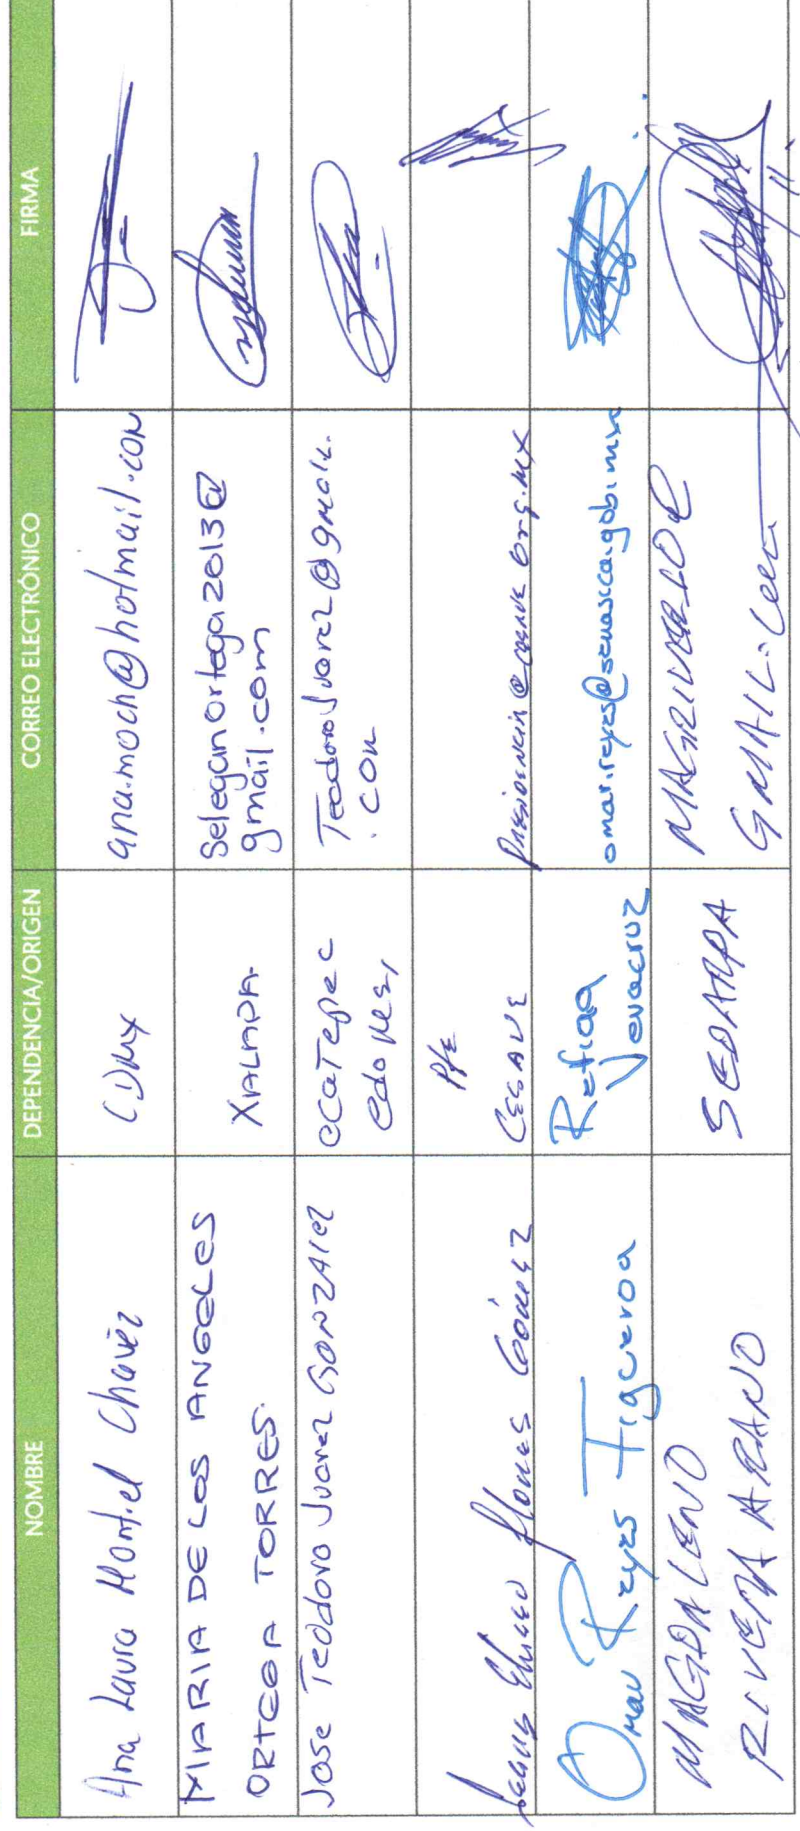 NOMBRE
DEPENDENCIA/ORIGEN
CORREO ELECTRÓNICO
FIRMA
Ana Laura Montiel Chavez
CDMX
ana.moch@hotmail.com
MARIA DE LOS ANGELES
ORTEGA TORRES.
XALAPA.
Seleganortega2013@
gmail.com
Jose Teodoro Juarez GONZALEZ
ecaTepec
edo mex,
TeodoroJuarez@gmail.
.com
Flores Gómez
P/E
CESAVE
Omar Reyes Figueroa
Refiaa
Veracruz
omar.reyes@senasica.gob.mx
MAGDALENO
RIVERA ARANO
SEDARPA